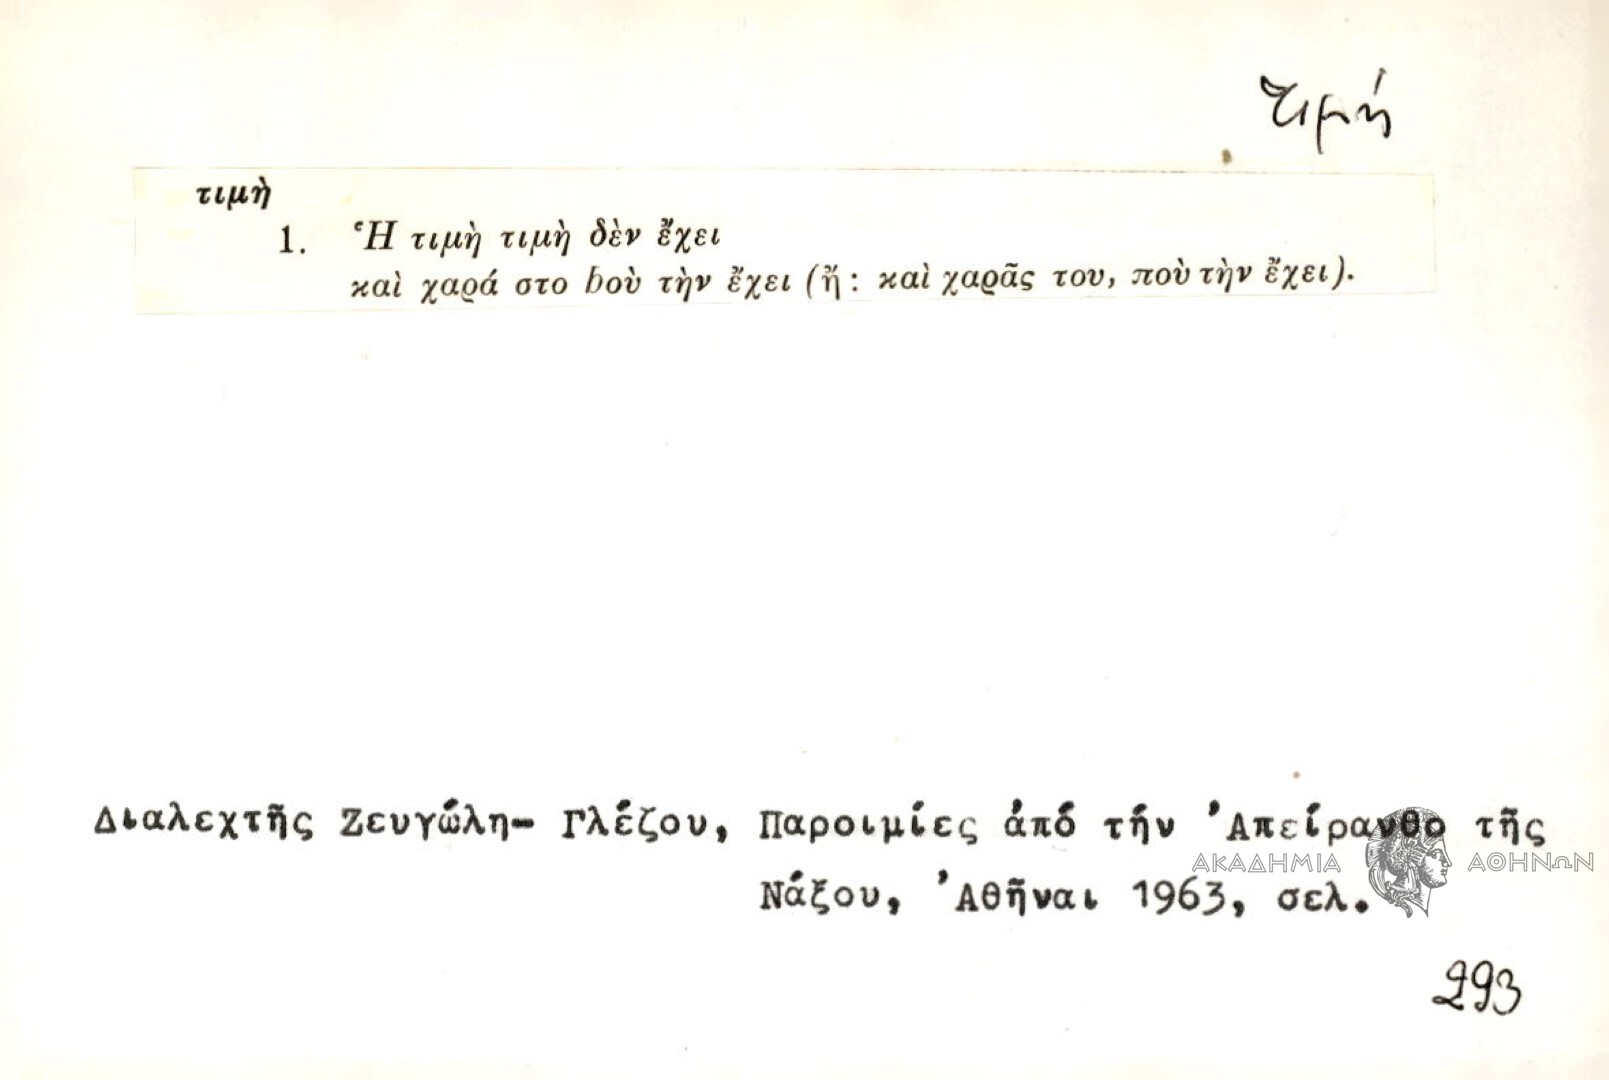 τιμή
τιμὴ
1. Ἡ τιμὴ τιμὴ δὲν ἔχει
καὶ χαρά στο bοὺ τὴν ἔχει (ἤ: καὶ χαρᾶς του, ποὺ τὴν ἔχει).
Διαλεχτῆς Ζευγώλη- Γλέζου, Παροιμίες ἀπό τήν Ἀπείρανθο τῆς
ΑΚΑΔΗΜΙΑ ΑΘΗΝΩΝ
Νάξου, Ἀθῆναι 1963, σελ.
293